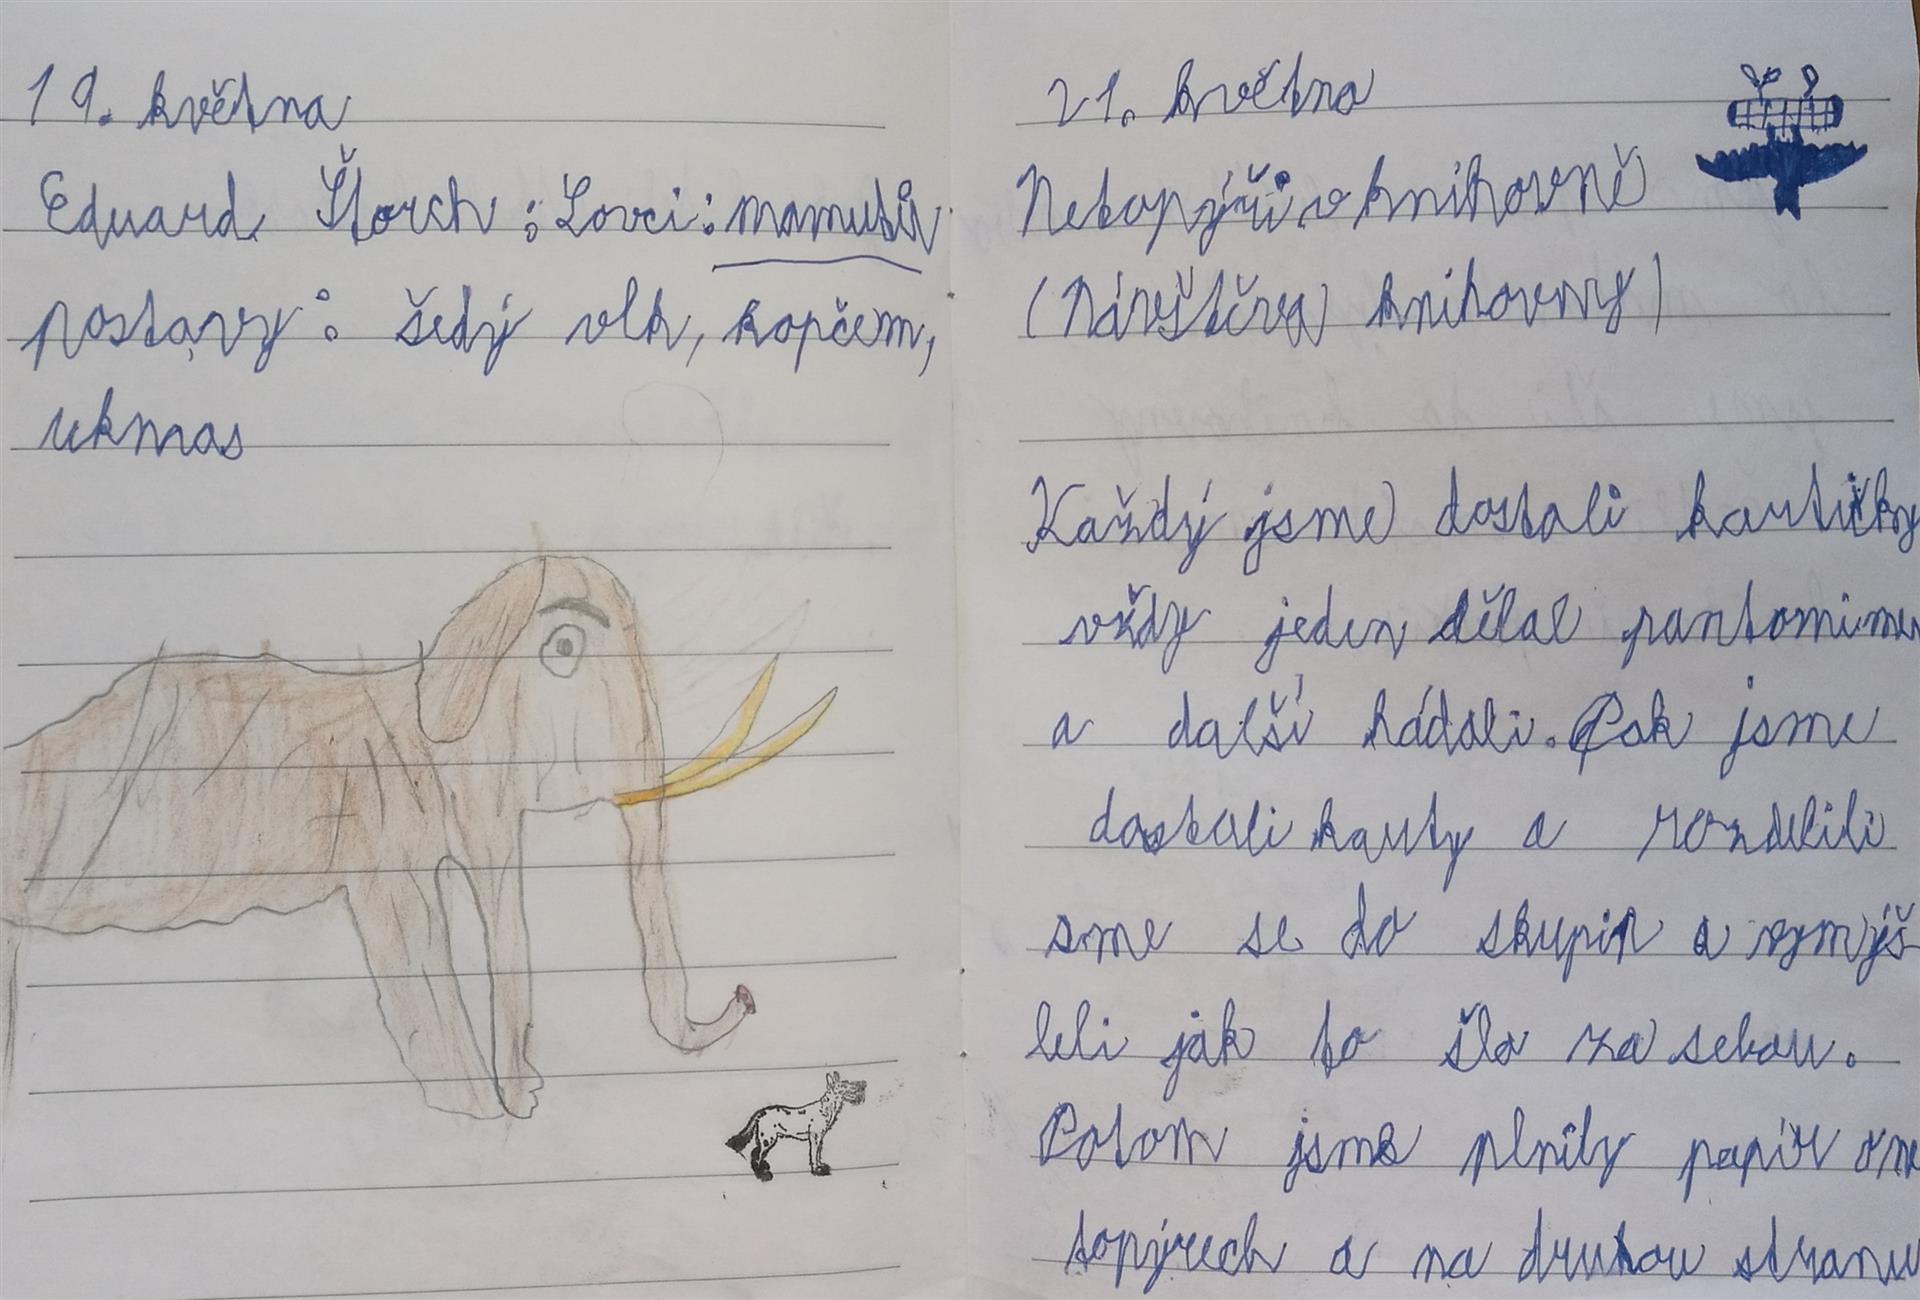 19. května
Eduard Štorch: Lovci: mamutů
postavy: šedý vlk, kopčem,
ukmas
21. května
Netopýři v knihovně
(Návštěva knihovny)
Každý jsme dostali kartičky
vždy jeden dělal pantomimu
a další hádali. Pak jsme
dostali karty a rozdelili
sme se do skupin a vymýš
leli jak to šlo za sebou.
Potom jsme plnily papír o ne
topýrech a na druhou stranu